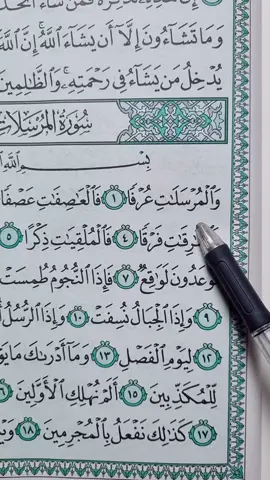 وَمَا تَشَآءُونَ إِلَّآ أَن يَشَآءَ ٱللَّهُ إِنَّ ٱللَّهَ
يُدْخِلُ مَن يَشَآءُ فِى رَحْمَتِهِۦ وَٱلظَّـٰلِمِينَ
سُورَةُ المُرْسَلَات
بِسْمِ ٱللَّهِ
وَٱلْمُرْسَلَـٰتِ عُرْفًا ١ فَٱلْعَـٰصِفَـٰتِ عَصْفًا
فَرْقًا ٤ فَٱلْمُلْقِيَـٰتِ ذِكْرًا ٥
تُوعَدُونَ لَوَٰقِعٌ ٧ فَإِذَا ٱلنُّجُومُ طُمِسَتْ
٩ وَإِذَا ٱلْجِبَالُ نُسِفَتْ ١٠ وَإِذَا ٱلرُّسُلُ
١٢ لِيَوْمِ ٱلْفَصْلِ ١٣ وَمَآ أَدْرَىٰكَ مَا يَوْمُ
لِّلْمُكَذِّبِينَ ١٥ أَلَمْ نُهْلِكِ ٱلْأَوَّلِينَ ١٦
١٧ كَذَٰلِكَ نَفْعَلُ بِٱلْمُجْرِمِينَ ١٨